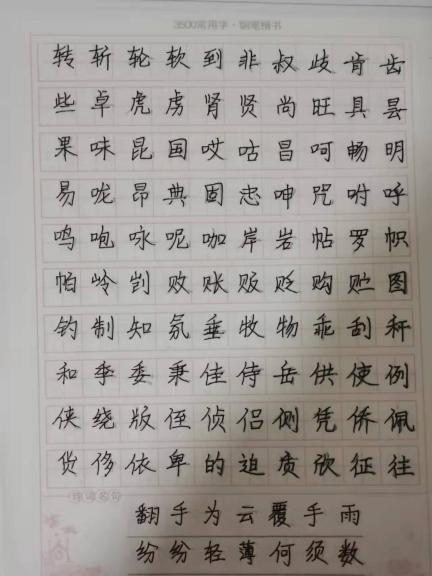 3500常用字·钢笔楷书
转斩轮软到非叔歧肯齿
些卓虎虏肾贤尚旺具昙
果味昆国哎咕昌呵畅明
易咙昂典固忠呻咒咐呼
鸣咆咏呢咖岸岩帖罗帜
帕岭剀败账贩贬购贮图
钓制知氛垂牧物乖刮秤
和季委秉佳侍岳供使例
侠绕版侄侦侣侧凭侨佩
货侈依卑的迫质欣征往
诗词名句
翻手为云覆手雨
纷纷轻薄何须数